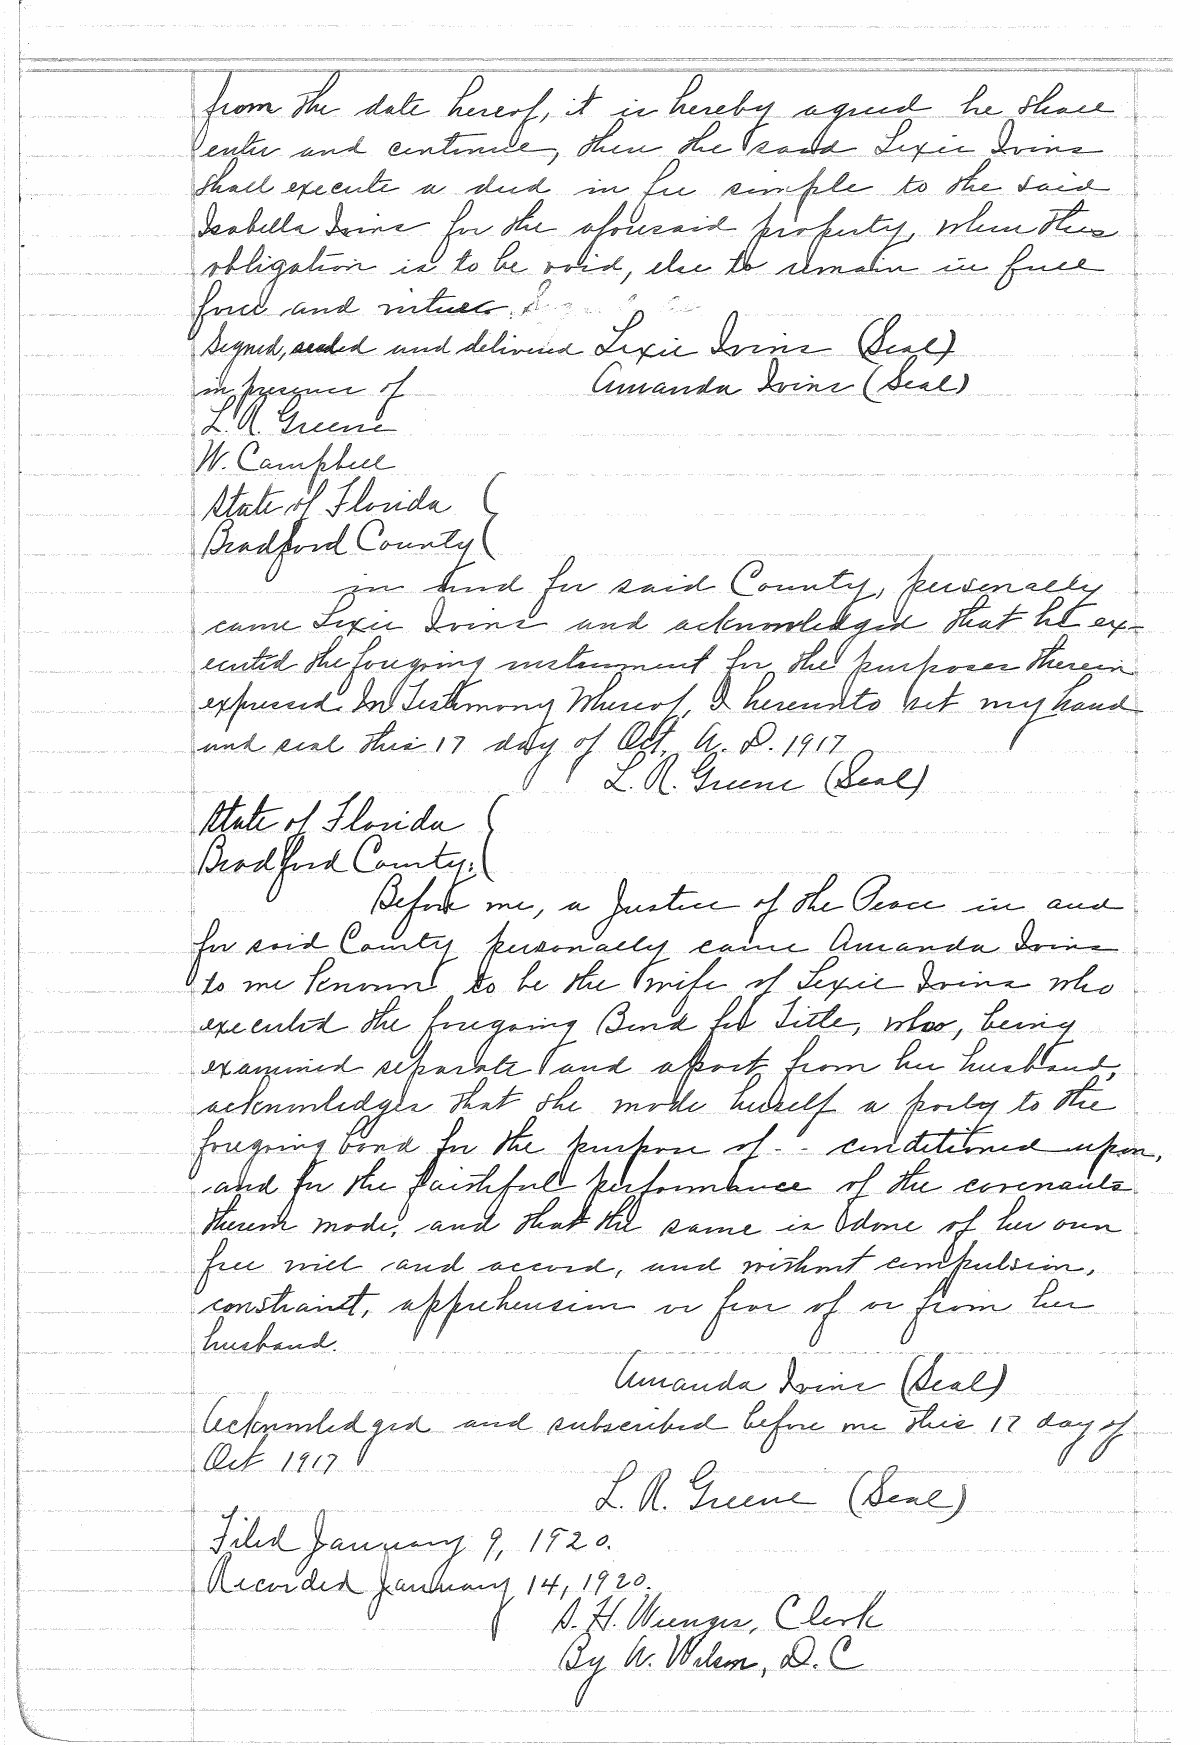 from the date hereof, it is hereby agreed he shall
enter and continue, then the said Lexie Ivins
shall execute a deed in fee simple to the said
Isabella Ivins for the aforesaid property, when this
obligation is to be void, else to remain in full
force and virtue.
Signed, sealed and delivered Lexie Ivins (Seal)
in presence of Amanda Ivins (Seal)
L. R. Greene
W. Campbell
State of Florida
Bradford County
in and for said County, personally
came Lexie Ivins and acknowledged that he ex-
ecuted the foregoing instrument for the purposes therein
expressed. In Testimony Whereof, I hereunto set my hand
and seal this 17 day of Oct. A. D. 1917
L. R. Greene (Seal)
State of Florida
Bradford County:
Before me, a Justice of the Peace in and
for said County personally came Amanda Ivins
to me known to be the wife of Lexie Ivins who
executed the foregoing Bond for Title, who, being
examined separate and apart from her husband,
acknowledges that she made herself a party to the
foregoing bond for the purpose of - - conditioned upon,
and for the faithful performance of the covenants
therein made, and that the same is done of her own
free will and accord, and without compulsion,
constraint, apprehension or fear of or from her
husband.
Amanda Ivins (Seal)
Acknowledged and subscribed before me this 17 day of
Oct 1917
L. R. Greene (Seal)
Filed January 9, 1920.
Recorded January 14, 1920.
A. H. Wienges, Clerk
By A. Wilson, D. C